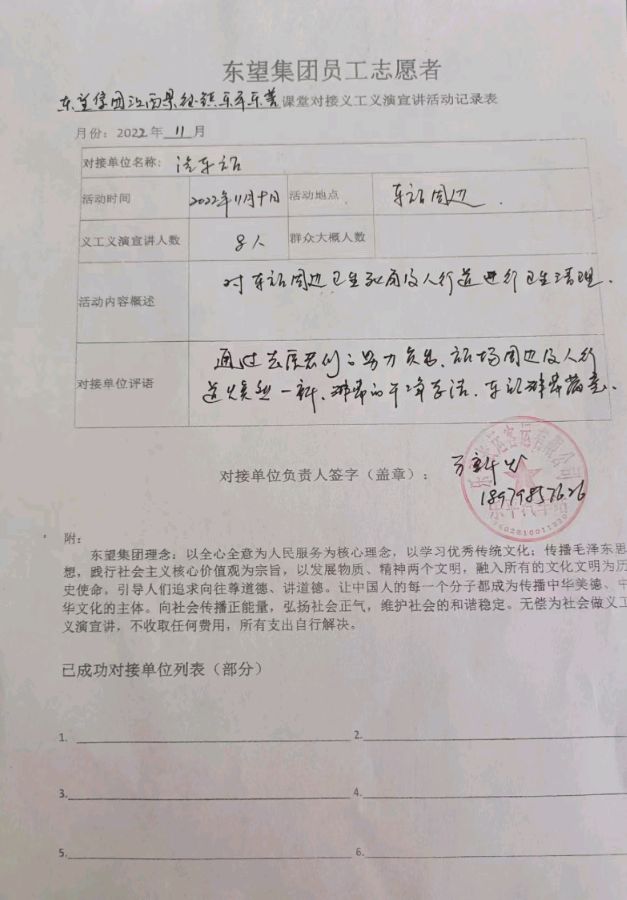 东望集团员工志愿者
东望集团江西景 课堂对接义工义演宣讲活动记录表
月份：2022年 11 月
对接单位名称： 汽车站
活动时间 2022年11月十日 活动地点 车站周边.
义工义演宣讲人数 8人 群众大概人数
活动内容概述 对车站周边卫生死角及人行道进行卫生清理.
对接单位评语 通过志愿者们的努力 站场周边及人行
道焕然一新、非常的干净整洁、车站非常满意.
对接单位负责人签字（盖章）：
18979857626
附：
东望集团理念：以全心全意为人民服务为核心理念，以学习优秀传统文化；传播毛泽东思
想，践行社会主义核心价值观为宗旨，以发展物质、精神两个文明，融入所有的文化文明为历
史使命，引导人们追求向往尊道德、讲道德。让中国人的每一个分子都成为传播中华美德、中
华文化的主体。向社会传播正能量，弘扬社会正气，维护社会的和谐稳定。无偿为社会做义工
义演宣讲，不收取任何费用，所有支出自行解决。
已成功对接单位列表（部分）
1. 2.
3. 4.
5. 6.